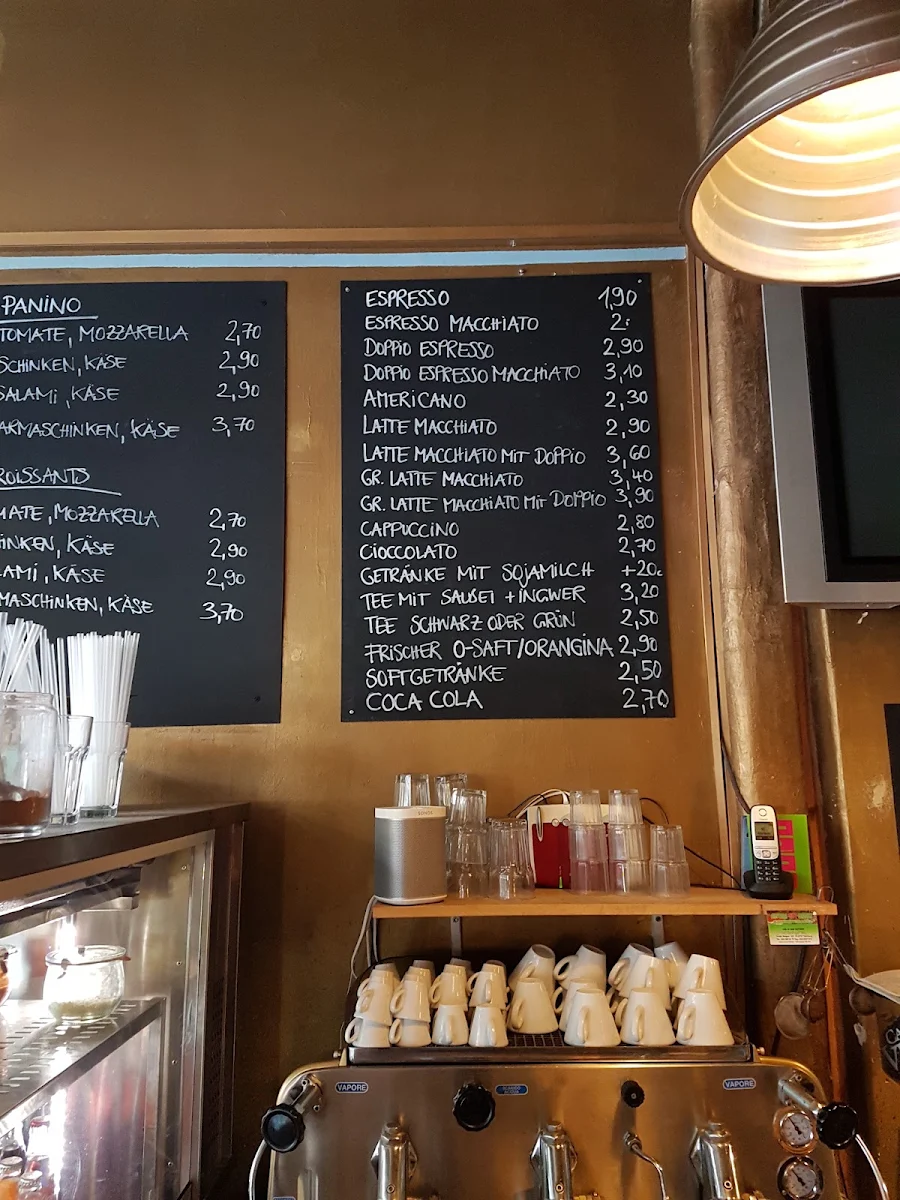 PANINO
TOMATE, MOZZARELLA 2,70
SCHINKEN, KÄSE 2,90
SALAMI, KÄSE 2,90
ARMASCHINKEN, KÄSE 3,70
ROISSANTS
MATE, MOZZARELLA 2,70
INKEN, KÄSE 2,90
LAMI, KÄSE 2,90
MASCHINKEN, KÄSE 3,70
ESPRESSO 1,90
ESPRESSO MACCHIATO 2:
DOPPIO ESPRESSO 2,90
DOPPIO ESPRESSO MACCHIATO 3,10
AMERICANO 2,30
LATTE MACCHIATO 2,90
LATTE MACCHIATO MIT DOPPIO 3,60
GR. LATTE MACCHIATO 3,40
GR. LATTE MACCHIATO MIT DOPPIO 3,90
CAPPUCCINO 2,80
CIOCCOLATO 2,70
GETRÄNKE MIT SOJAMILCH +20c
TEE MIT SALBEI + INGWER 3,20
TEE SCHWARZ ODER GRÜN 2,50
FRISCHER O-SAFT/ORANGINA 2,90
SOFTGETRÄNKE 2,50
COCA COLA 2,70
SONOS
VAPORE
VAPORE